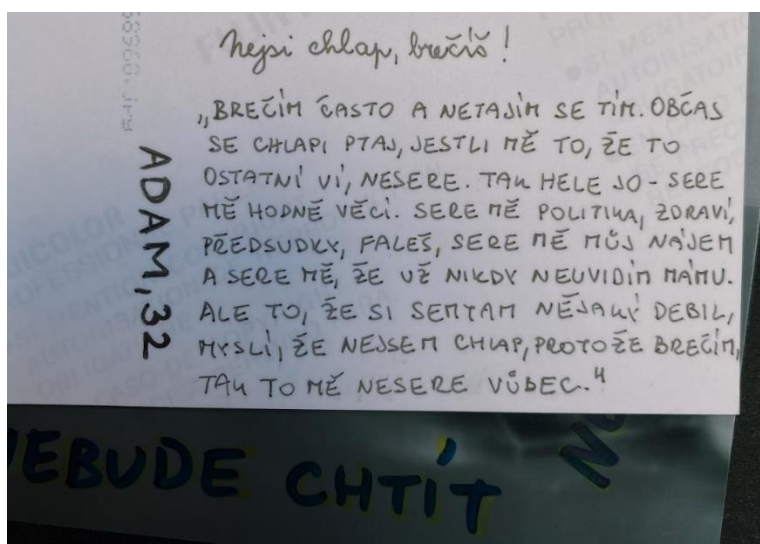 Nejsi chlap, brečíš!
„BREČÍM ČASTO A NETAJÍM SE TÍM. OBČAS
SE CHLAPI PTAJ, JESTLI MĚ TO, ŽE TO
OSTATNÍ VÍ, NESERE. TAK HELE JO - SERE
MĚ HODNĚ VĚCÍ. SERE MĚ POLITIKA, ZDRAVÍ,
PŘEDSUDKY, FALEŠ, SERE MĚ MŮJ NÁJEM
A SERE MĚ, ŽE UŽ NIKDY NEUVIDÍM MÁMU.
ALE TO, ŽE SI SEMTAM NĚJAKÝ DEBIL,
MYSLÍ, ŽE NEJSEM CHLAP, PROTOŽE BREČÍM,
TAK TO MĚ NESERE VŮBEC."
ADAM, 32
NEBUDE CHTÍT